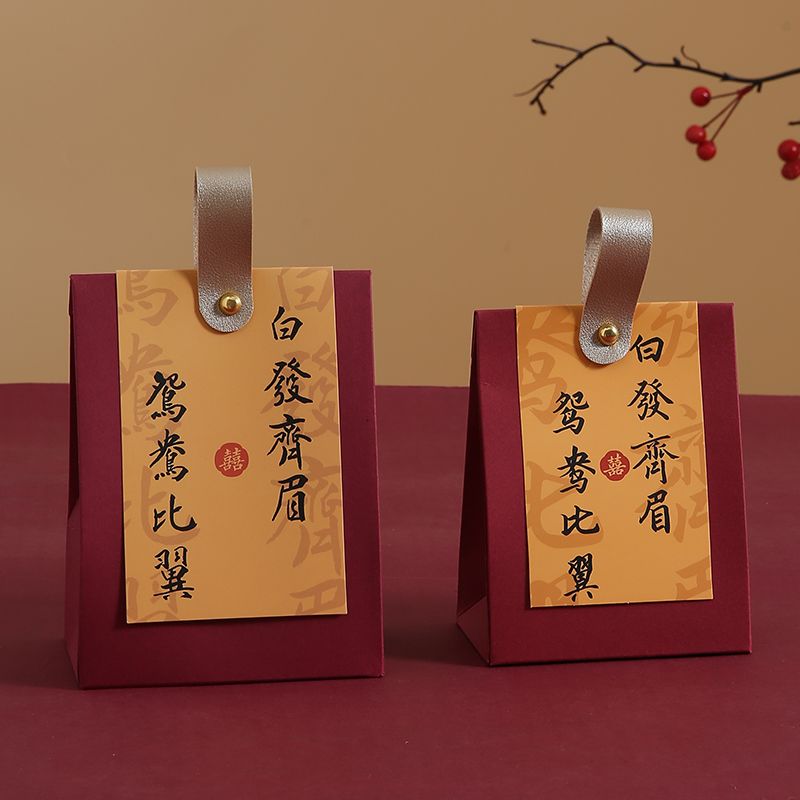 白發齊眉
鴛鴦比翼
囍
白發齊眉
鸳鸯比翼
囍